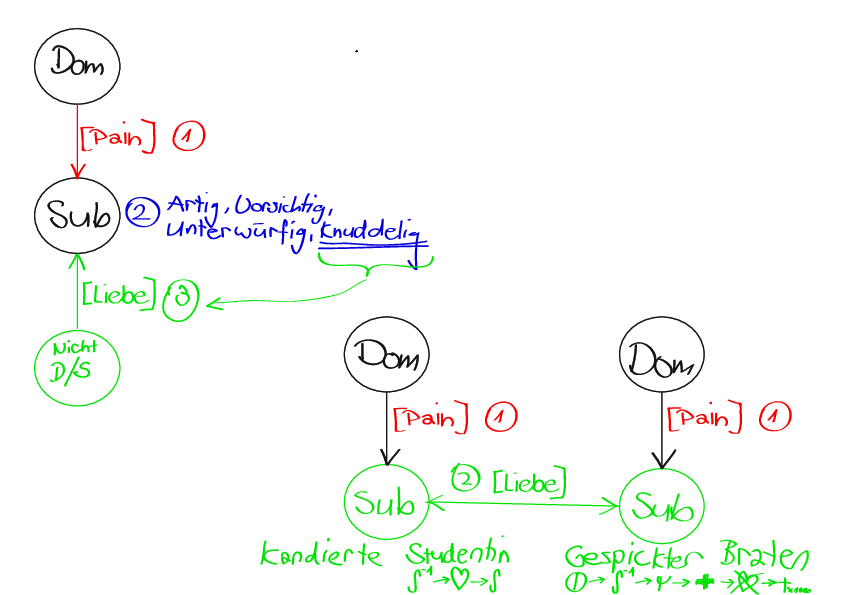 Dom
[Pain] 1
Sub
2 Artig, Vorsichtig,
Unterwürfig, Knuddelig
[Liebe] 3
Nicht
D/S
Dom
Dom
[Pain] 1
[Pain] 1
2 [Liebe]
Sub
Sub
Kandierte Studentin
Gespickter Braten